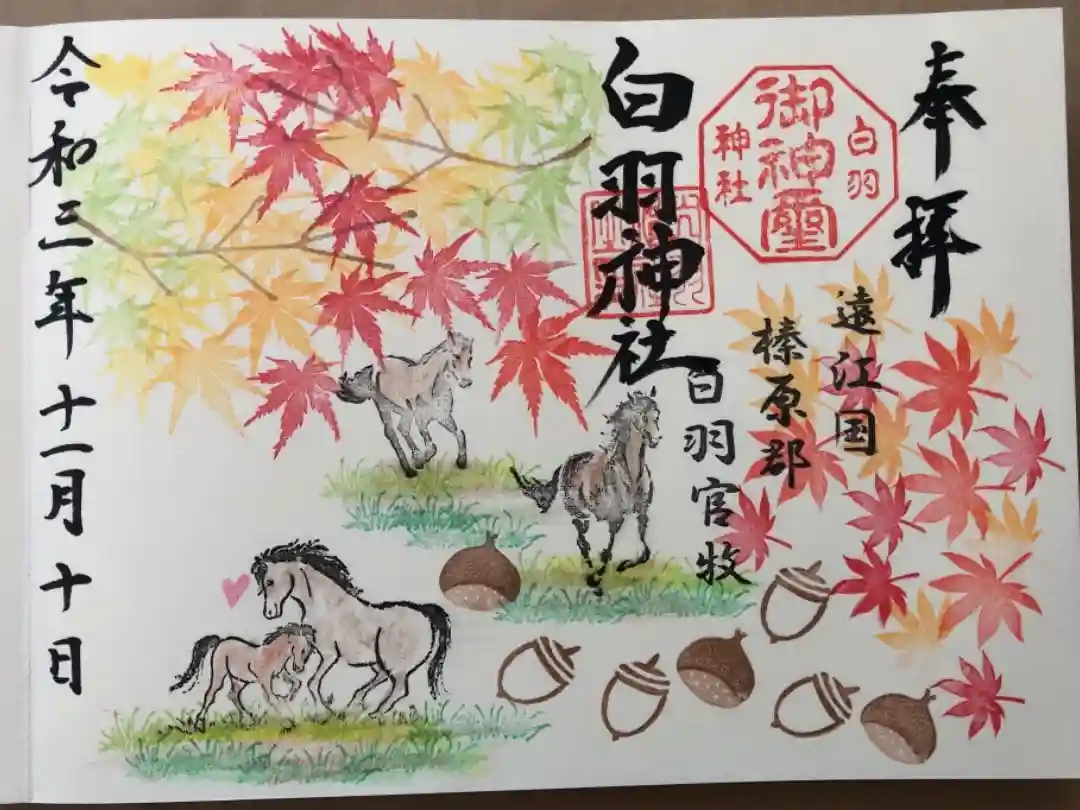 奉拝
白羽
御神璽
神社
遠江国
榛原郡
白羽官牧
白羽神社
令和三年十一月十日